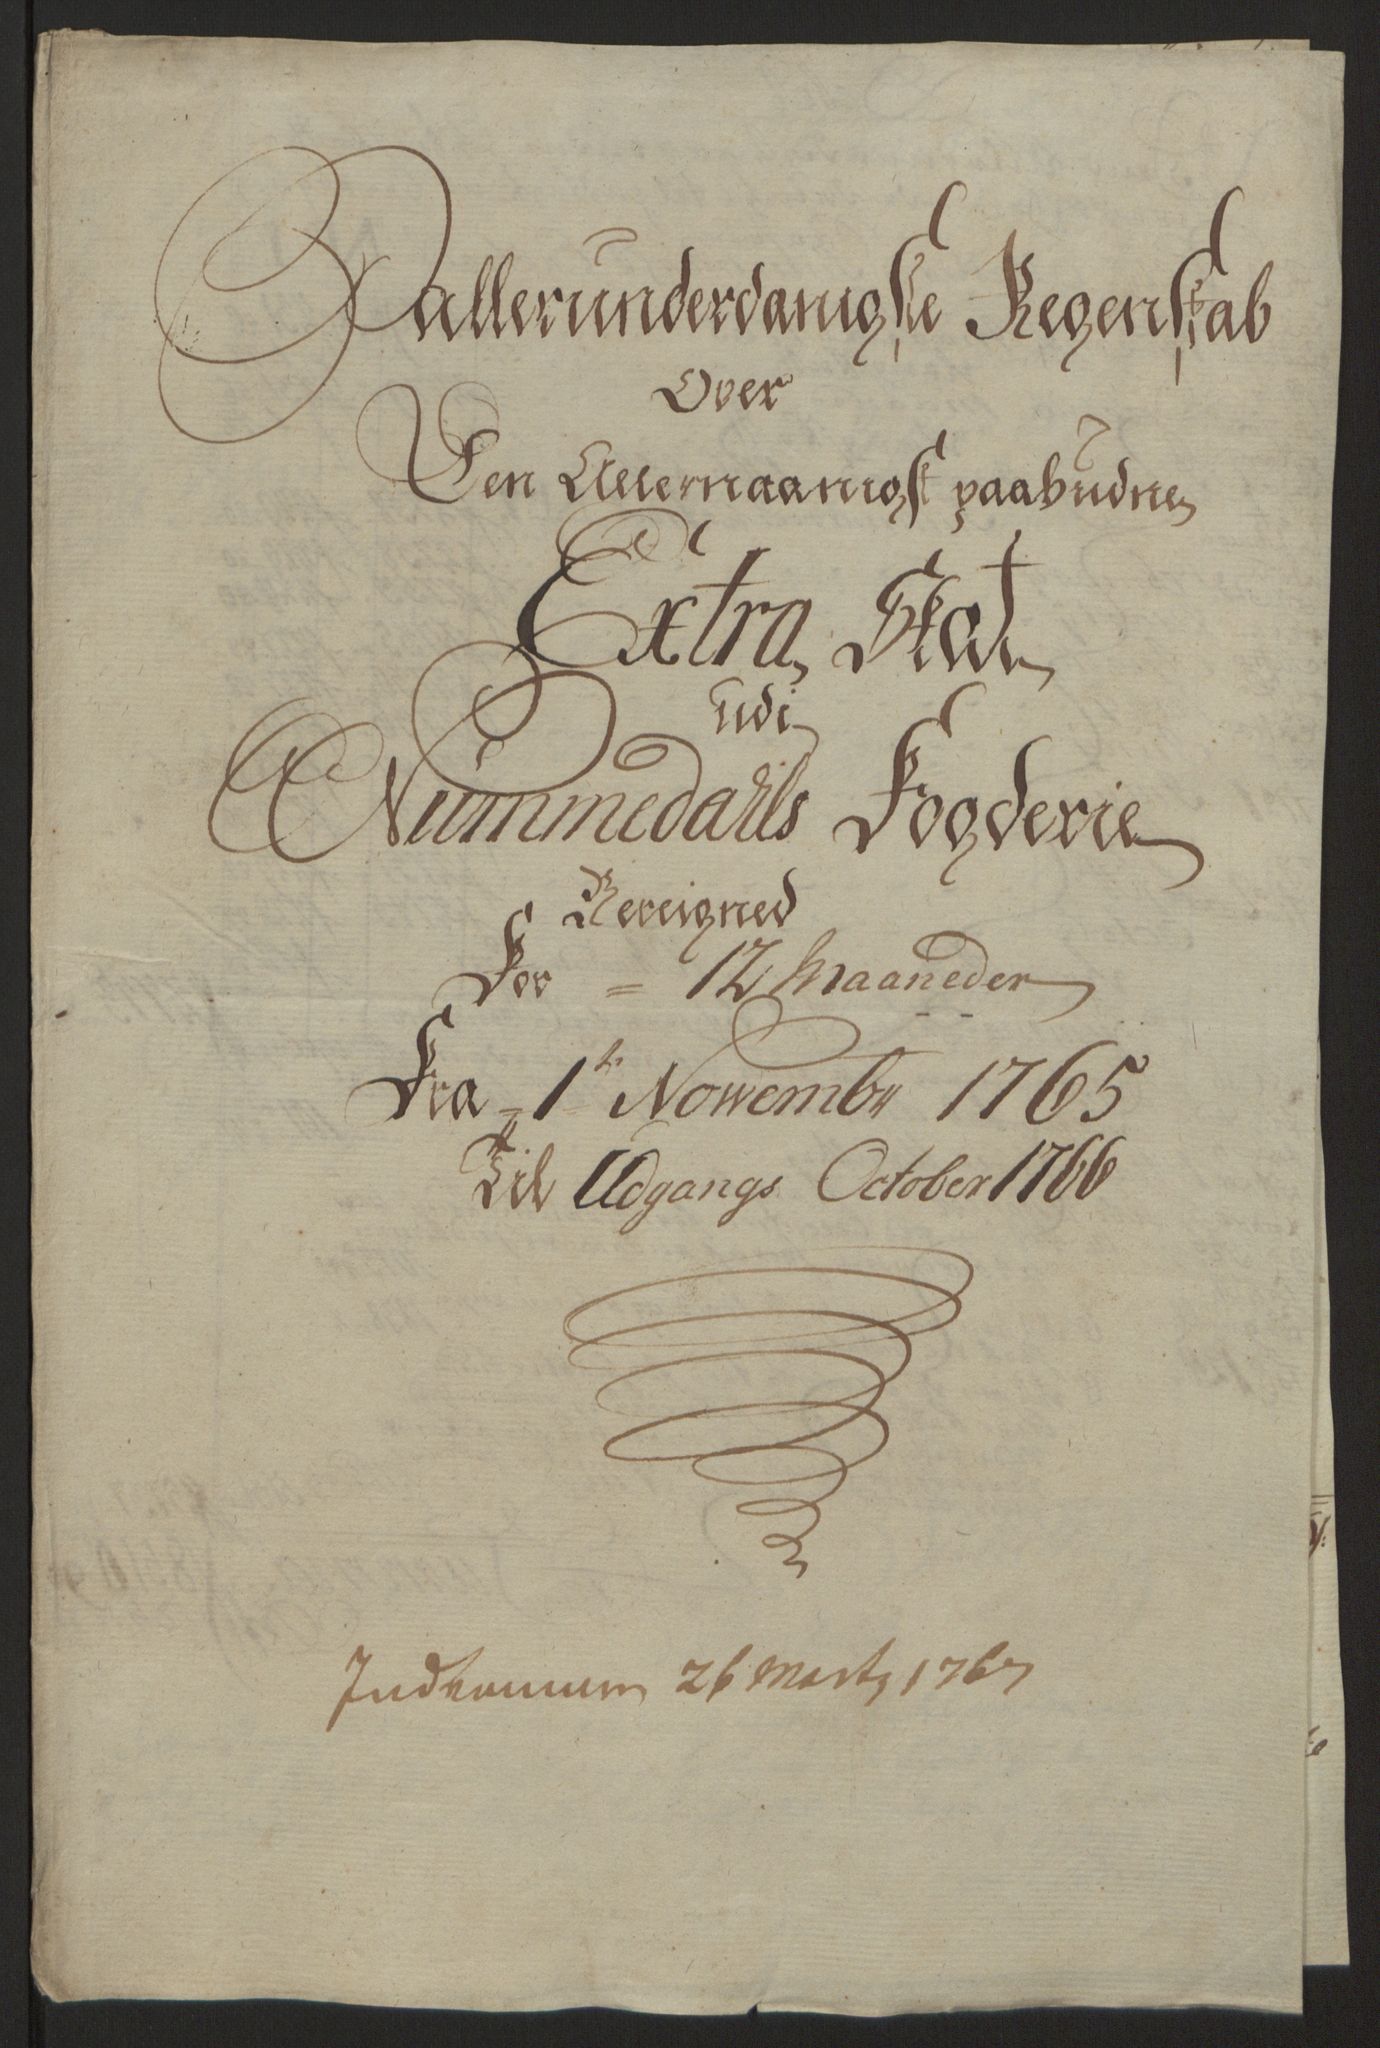 Allerunderdanigste Regenskab
Over
Den Allernaanigst paabudne
Extra Skat
udi
Nummedahls Fogderie
Bereigned
For = 12 Maaneder
Fra = 1te Novembr 1765
Til Udgangs October 1766
Indkommen 26 Marty 1767